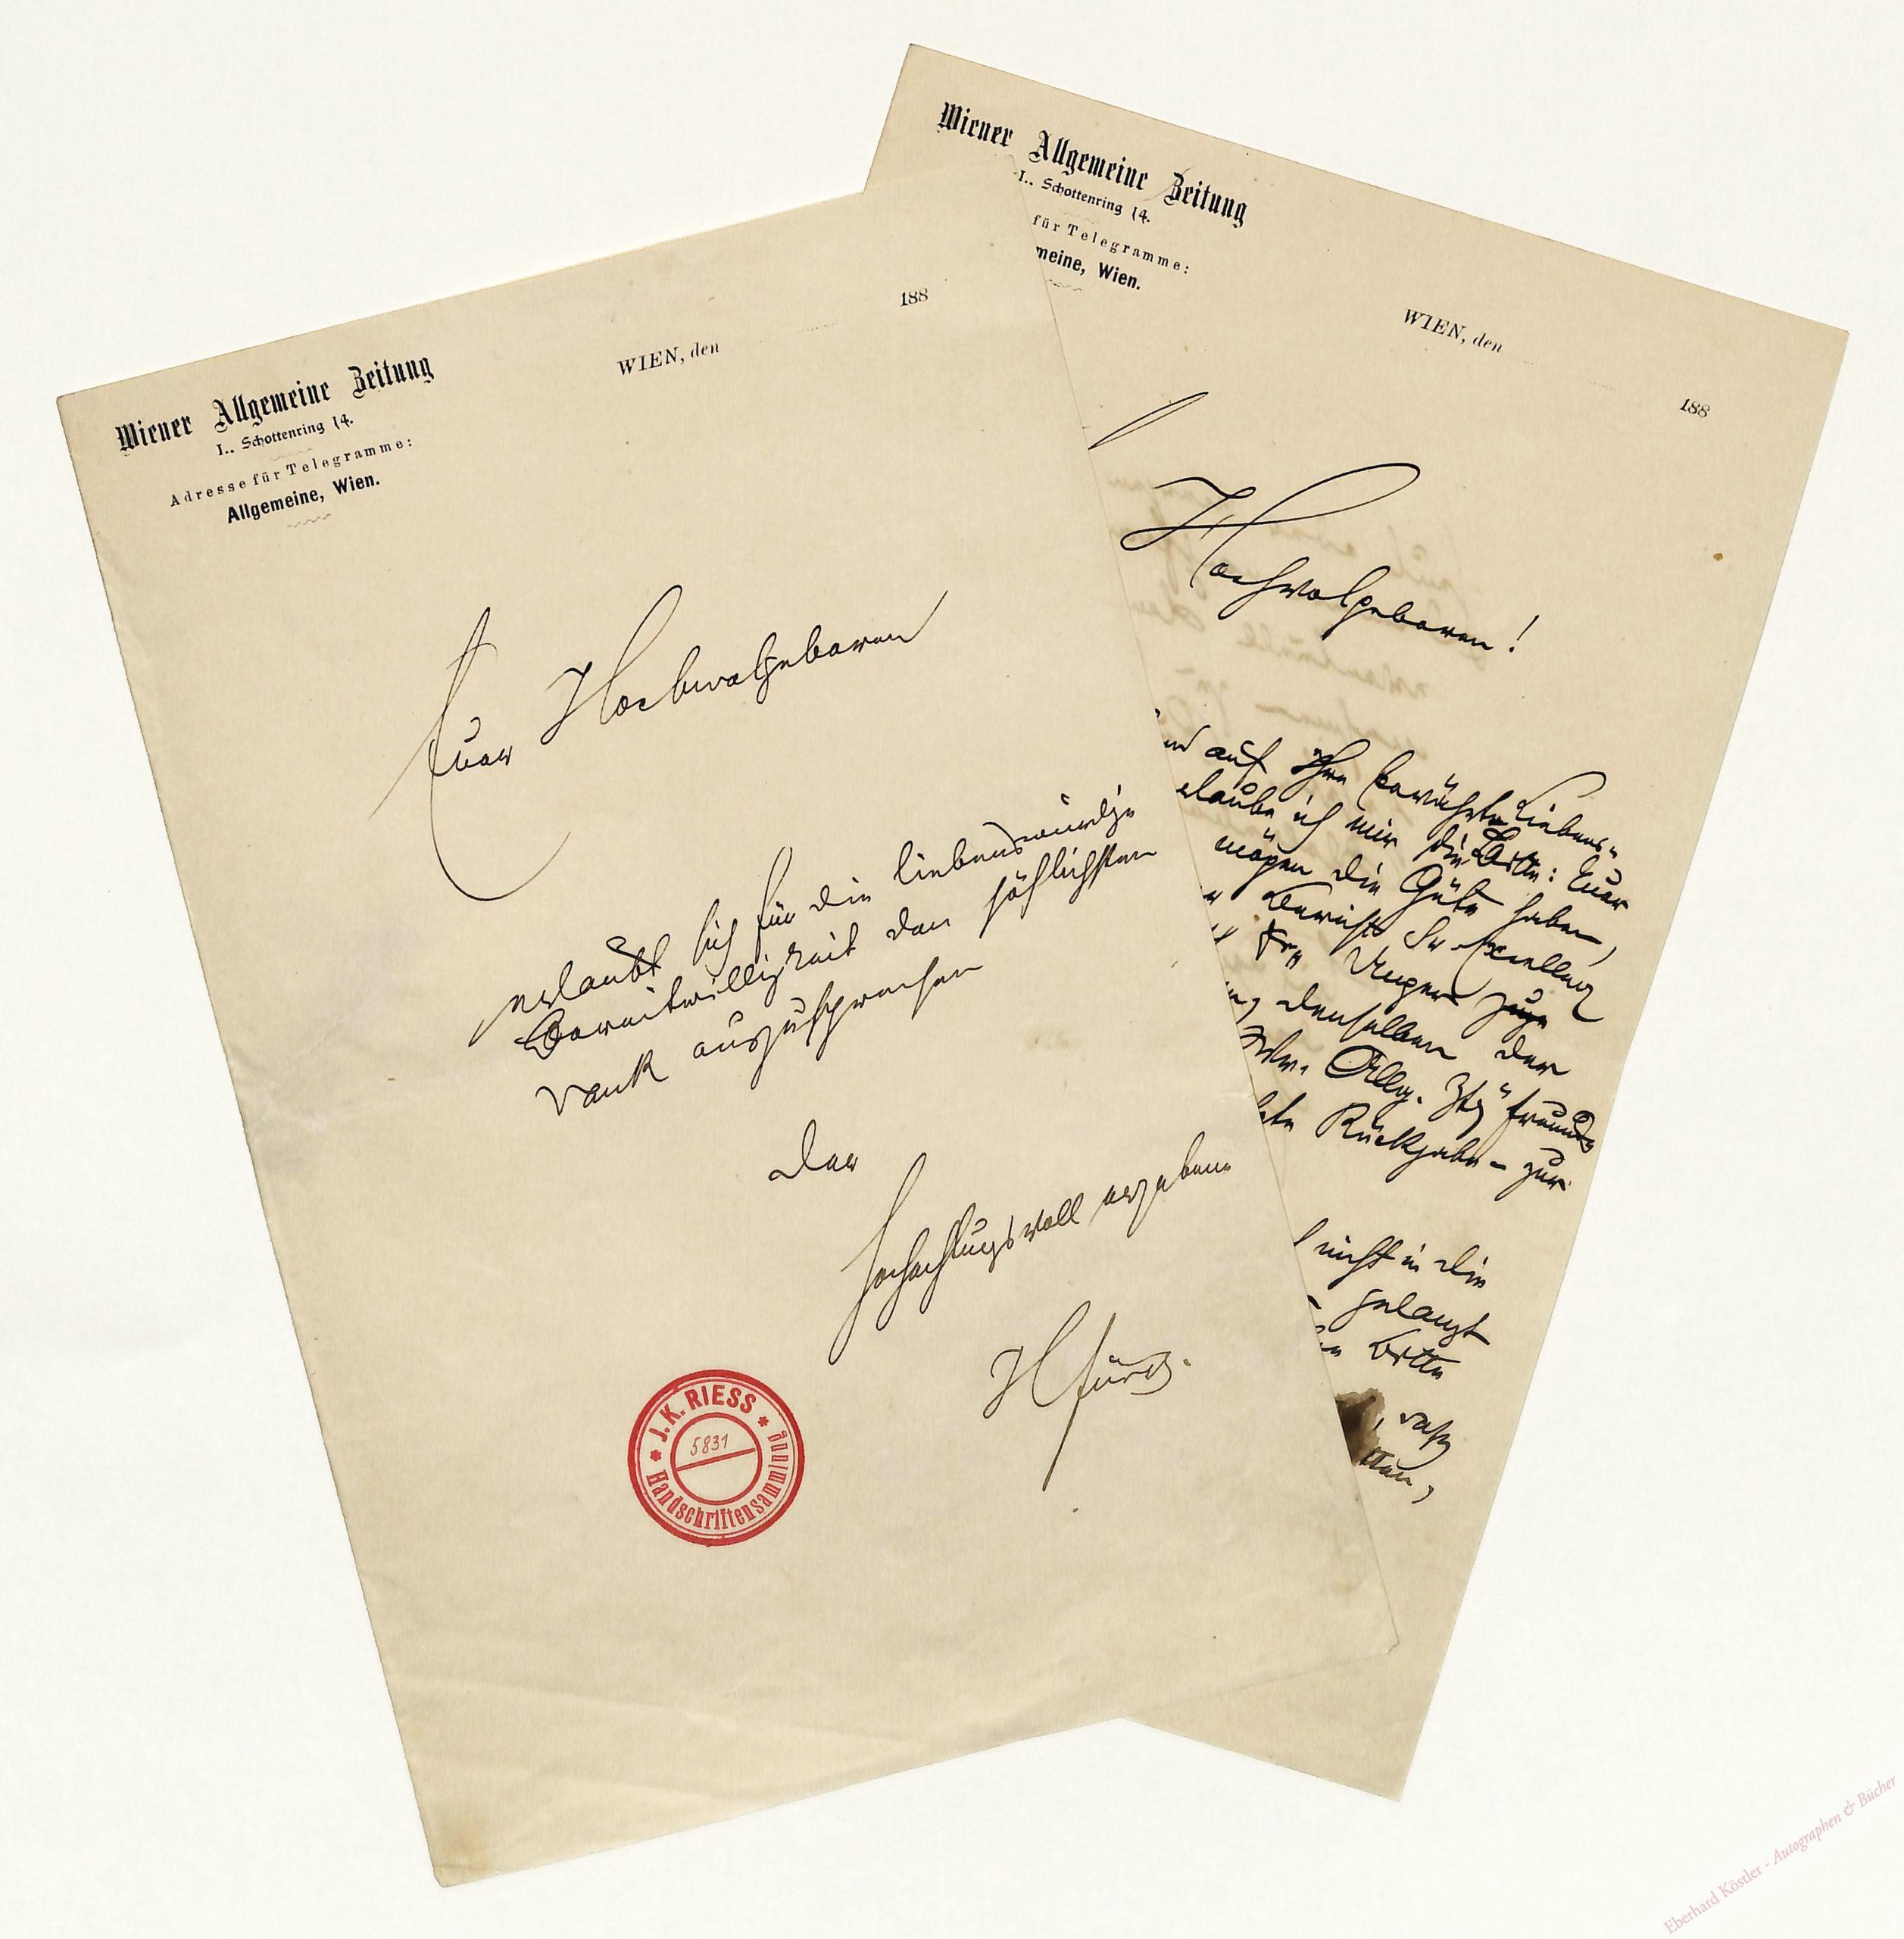 Wiener Allgemeine Zeitung
I., Schottenring 14.
Adresse für Telegramme:
Allgemeine, Wien.
WIEN, den 188
Euer Hochwolgeboren
erlaubt sich für die liebenswürdige
Bereitwilligkeit den höflichsten
Dank auszusprechen
der
hochachtungsvoll ergebene
J. K. RIESS
5831
Handschriftensammlung
Wiener Allgemeine Zeitung
I., Schottenring 14.
für Telegramme:
meine, Wien.
WIEN, den 188
Hochwolgeboren!
auf Ihre bewährte Liebens-
erlaube ich mir die Bitte: Euer
mögen die Güte haben,
Bericht Sr Excellenz
Unger
denselben der
Allg. Ztg" freund
Rückgabe - zur
nicht in die
gelangt
Bitte
, daß
Eberhard Köstler - Autographen & Bücher